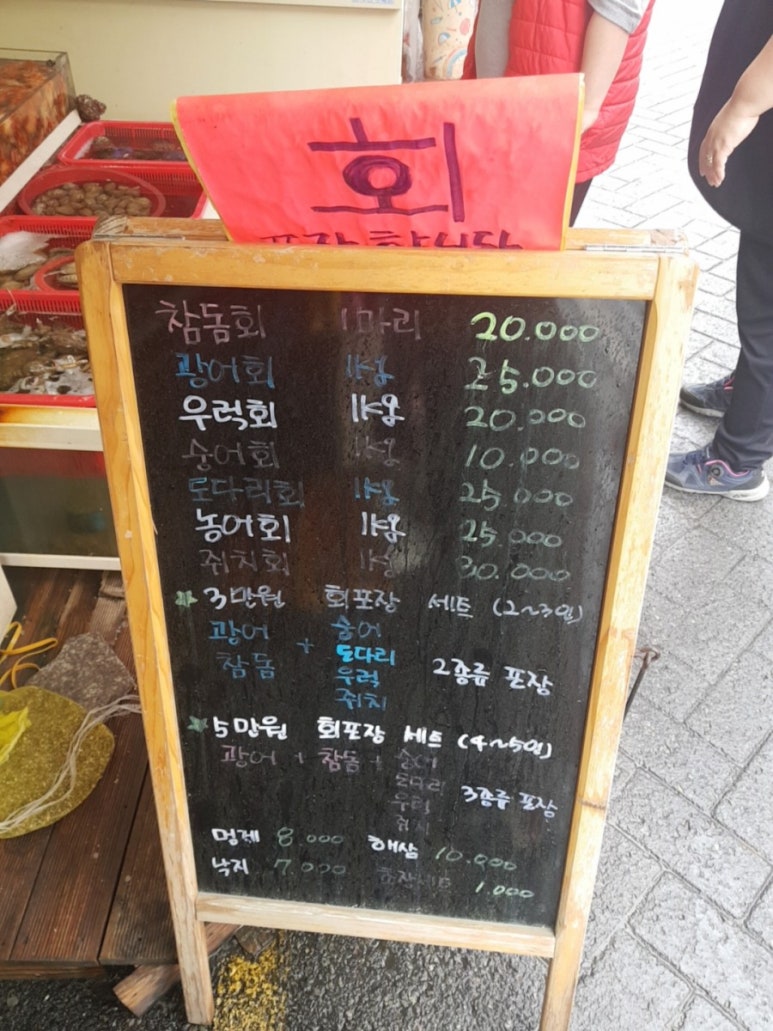 회
포장 합니다
참돔회 1마리 20.000
광어회 1kg 25.000
우럭회 1kg 20.000
숭어회 1kg 10.000
도다리회 1kg 25.000
농어회 1kg 25.000
쥐치회 1kg 30.000
3만원 회포장 세트 (2~3인)
광어 + 숭어
참돔 도다리 2종류 포장
우럭
쥐치
5만원 회포장 세트 (4~5인)
광어 + 참돔 + 숭어
도다리 3종류 포장
우럭
쥐치
멍게 8.000 해삼 10.000
낙지 7.000 초장세트 1.000